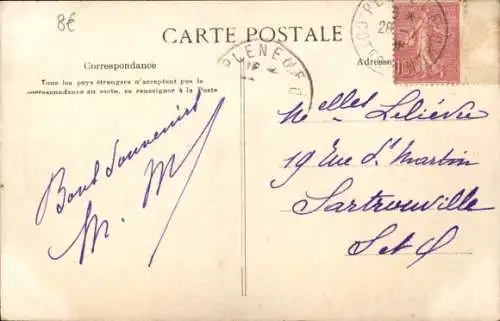 8€
CARTE POSTALE
Correspondance
Tous les pays étrangers n'acceptent pas la
correspondance au recto, se renseigner à la Poste
Adresse
PLENEUF
Bons Souvenirs
M. M
Melles Lelièvre
19 Rue St Martin
Sartrouville
S et O